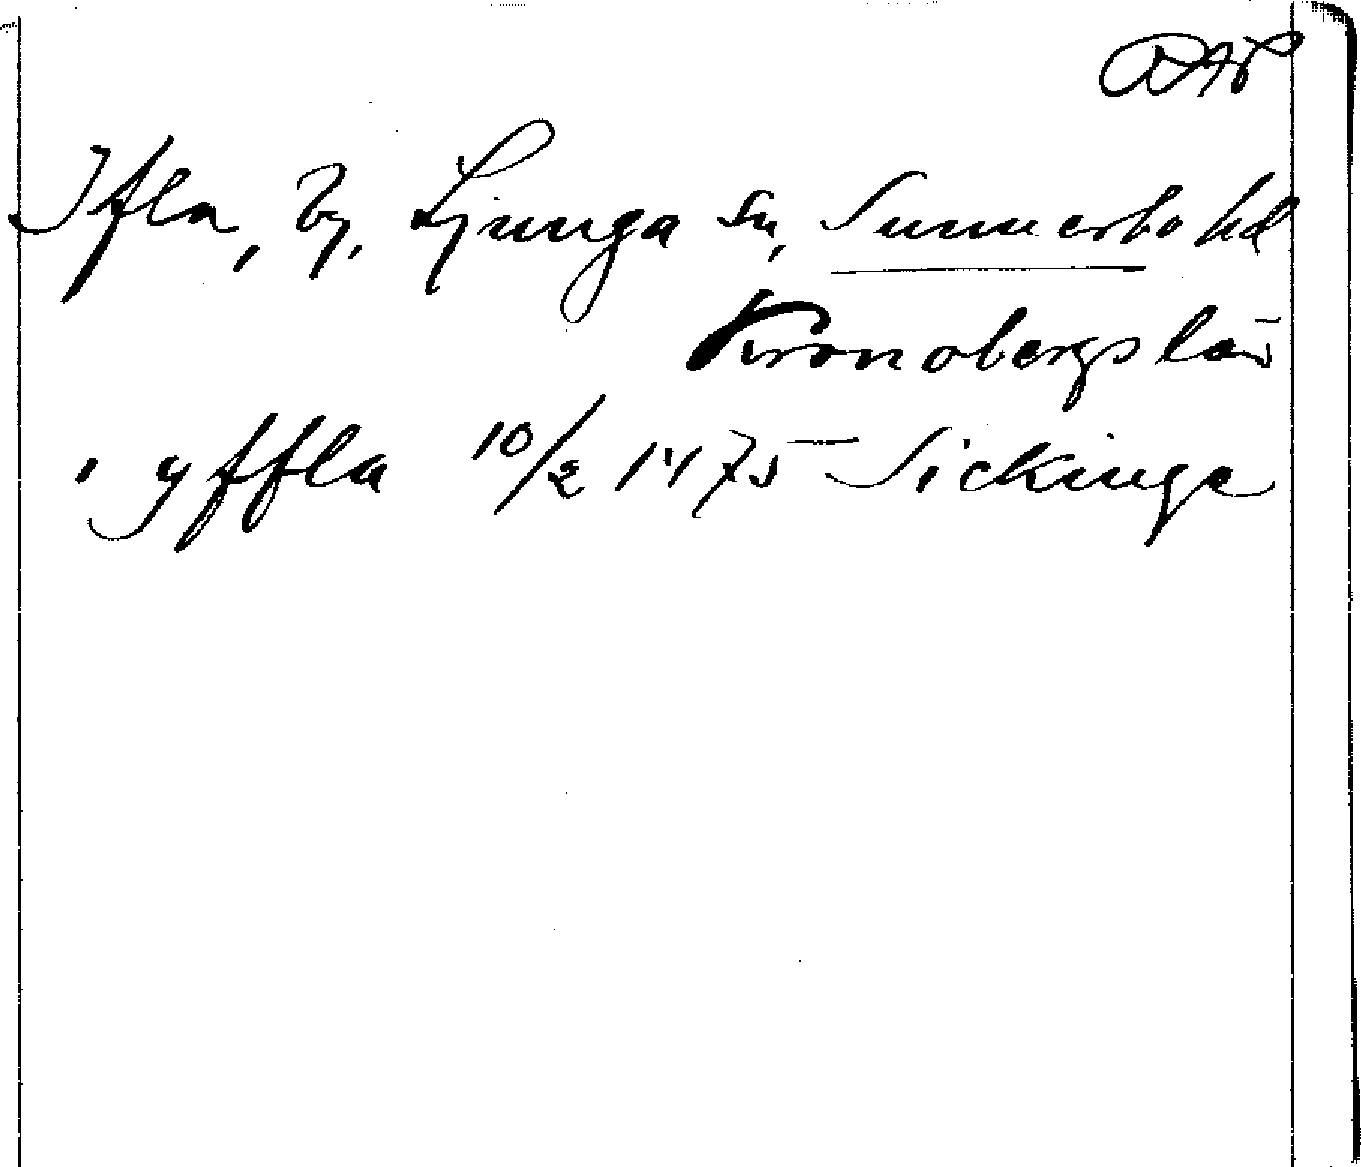 RAP
Ifla, by, Ljunga sn, Sunnerbo hd
Kronobergs län
i yffla 10/2 1475 Sickinge